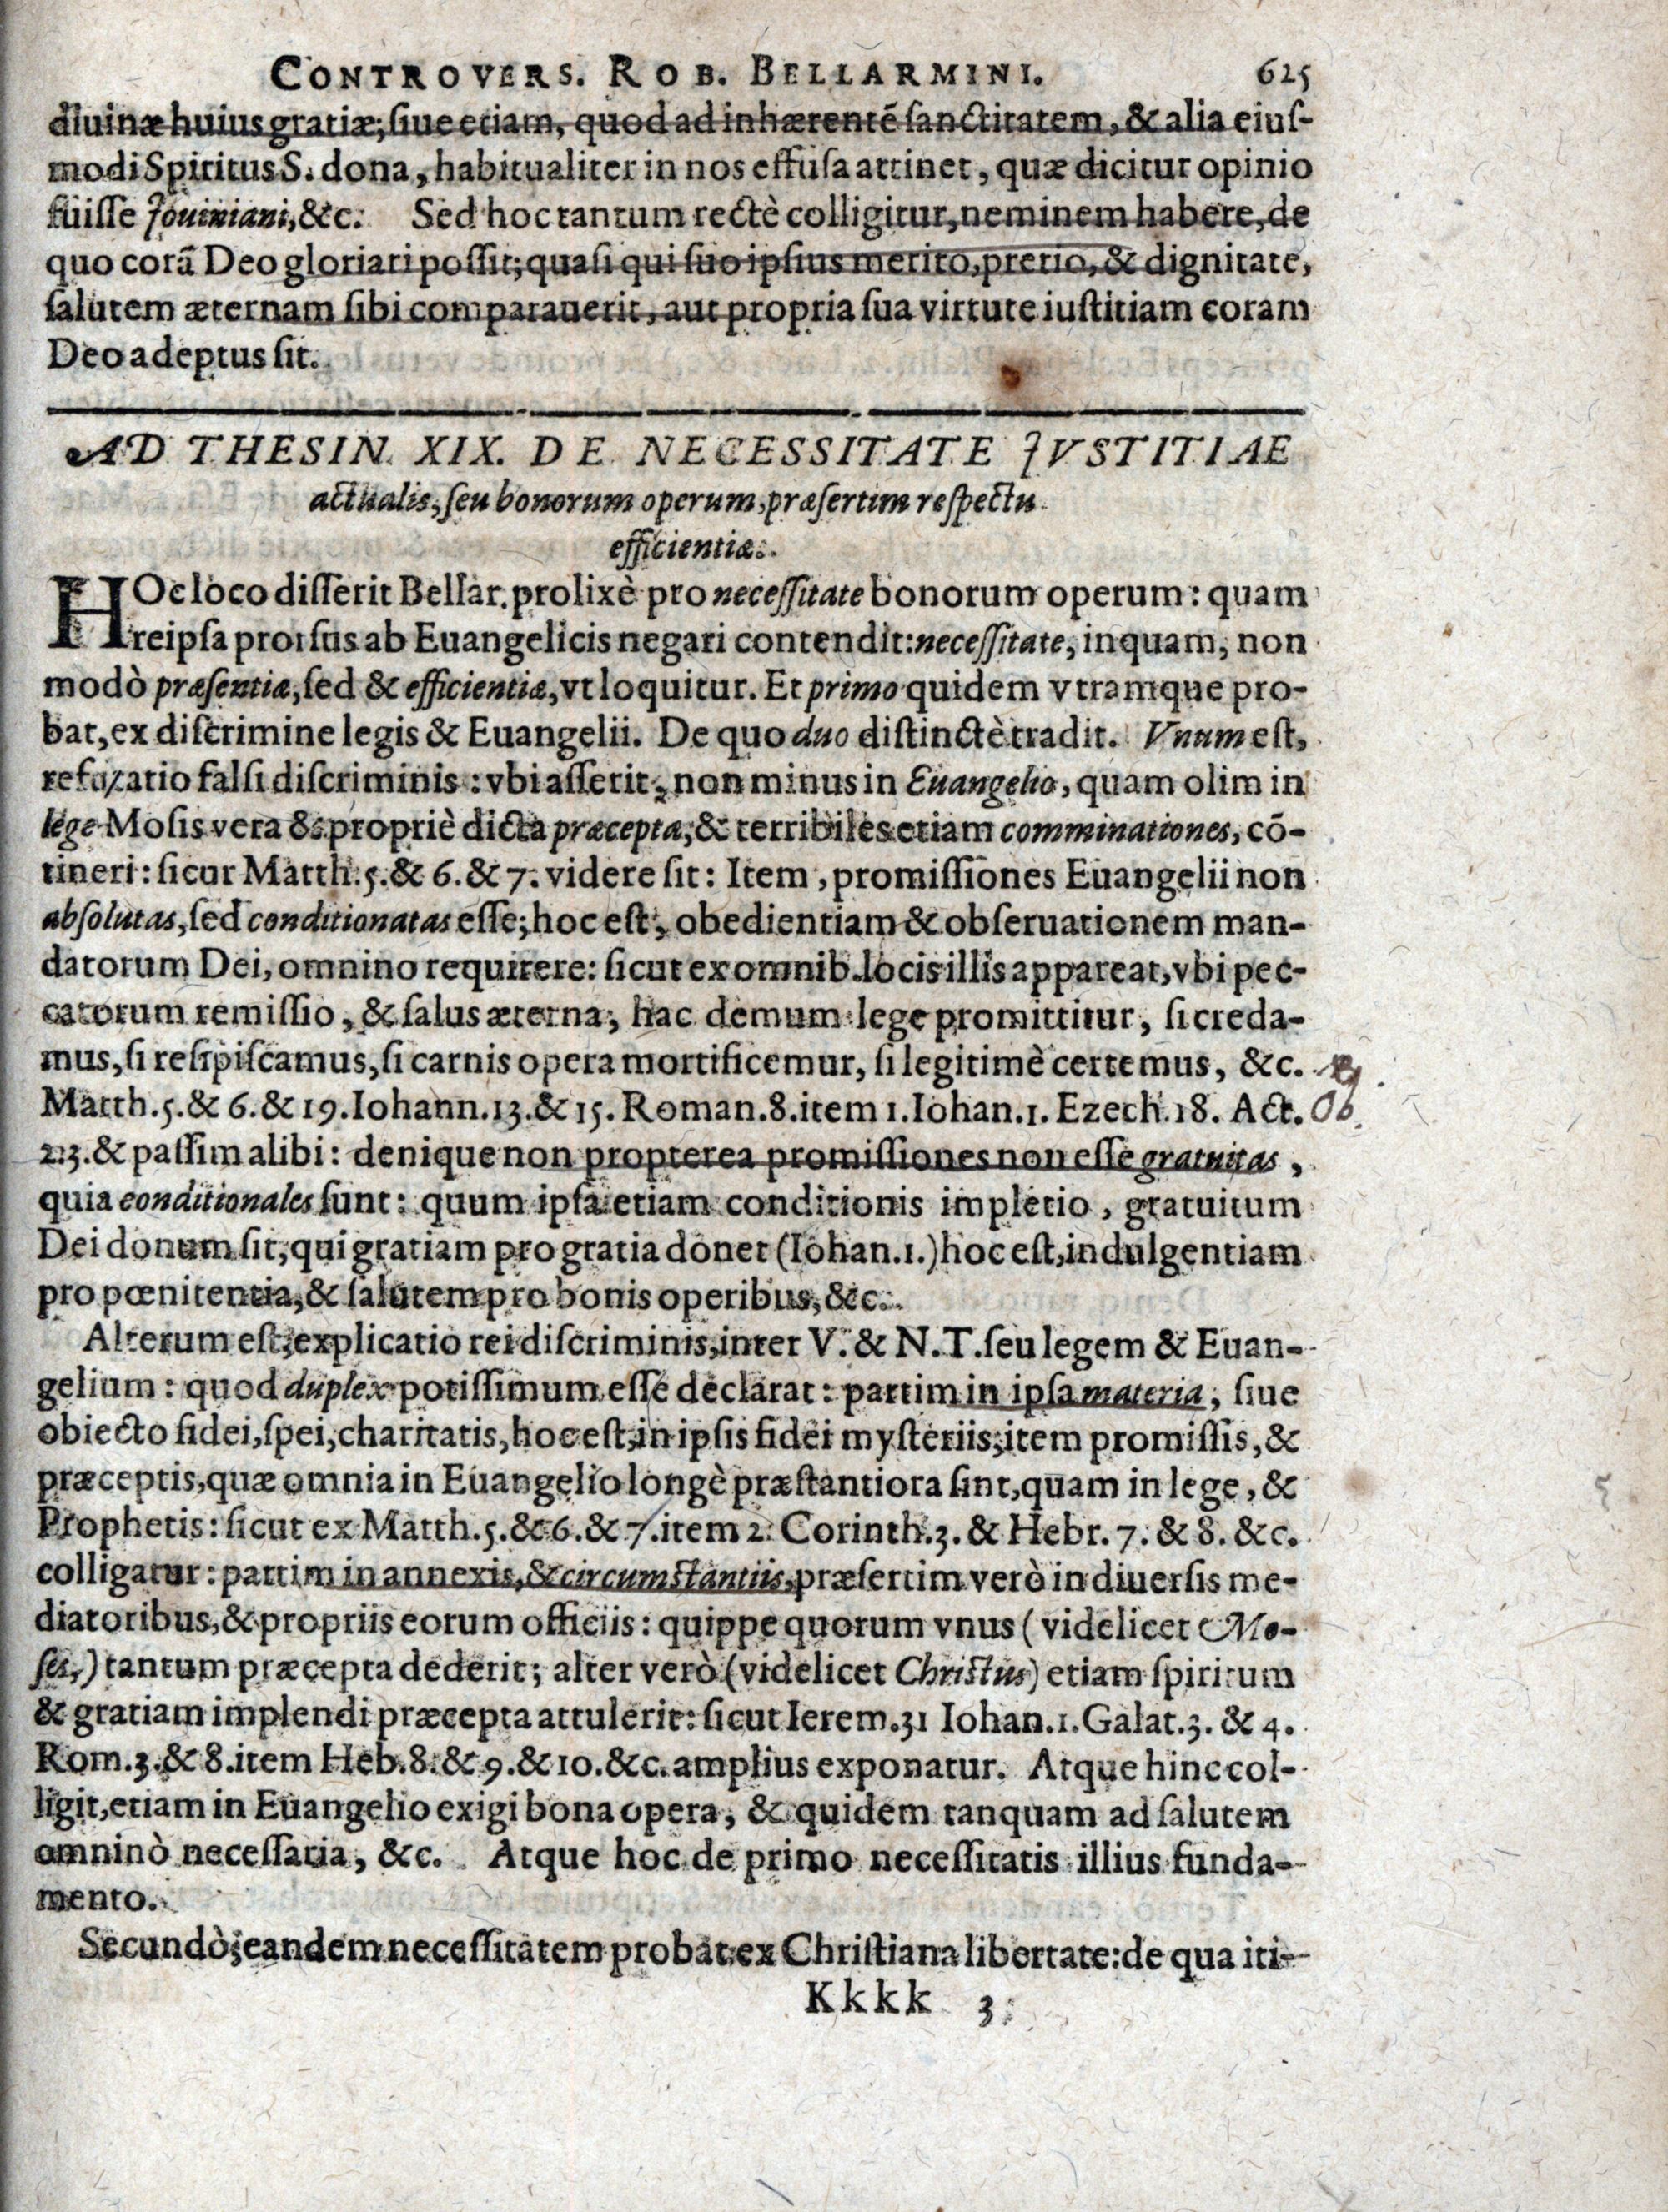 CONTROVERS. ROB. BELLARMINI. 625
diuinæ huius gratiæ; ſiue etiam, quod ad inhærentē ſanctitatem, & alia eiuſ-
modi Spiritus S. dona, habitualiter in nos effuſa attinet, quæ dicitur opinio
fuiſſe Jouiniani, &c. Sed hoc tantum rectè colligitur, neminem habere, de
quo corã Deo gloriari poſſit; quaſi qui ſuo ipſius merito, pretio, & dignitate,
ſalutem æternam ſibi comparauerit, aut propria ſua virtute iuſtitiam coram
Deo adeptus ſit.
AD THESIN XIX. DE NECESSITATE JVSTITIAE
actualis, ſeu bonorum operum, præſertim reſpectu
efficientiæ.
HOc loco diſſerit Bellar. prolixè pro neceſſitate bonorum operum: quam
reipſa prorſus ab Euangelicis negari contendit: neceſſitate, inquam, non
modò præſentiæ, ſed & efficientiæ, vt loquitur. Et primo quidem vtramque pro-
bat, ex diſcrimine legis & Euangelii. De quo duo diſtinctè tradit. Vnum eſt,
refutatio falſi diſcriminis: vbi aſſerit, non minus in Euangelio, quam olim in
lege Moſis vera & propriè dicta præcepta, & terribiles etiam comminationes, cō-
tineri: ſicut Matth. 5. & 6. & 7. videre ſit: Item, promiſſiones Euangelii non
abſolutas, ſed conditionatas eſſe; hoc eſt, obedientiam & obſeruationem man-
datorum Dei, omnino requirere: ſicut ex omnib. locis illis appareat, vbi pec-
catorum remiſſio, & ſalus æterna, hac demum lege promittitur, ſi creda-
mus, ſi reſipiſcamus, ſi carnis opera mortificemur, ſi legitimè certemus, &c.
Matth. 5. & 6. & 19. Iohann. 13. & 15. Roman. 8. item 1. Iohan. 1. Ezech. 18. Act. Ob.
2. 3. & paſſim alibi: denique non propterea promiſſiones non eſſe gratuitas,
quia conditionales ſunt: quum ipſa etiam conditionis impletio, gratuitum
Dei donum ſit, qui gratiam pro gratia donet (Iohan. 1.) hoc eſt, indulgentiam
pro pœnitentia, & ſalutem pro bonis operibus, &c.
Alterum eſt, explicatio rei diſcriminis, inter V. & N. T. ſeu legem & Euan-
gelium: quod duplex potiſſimum eſſe declarat: partim in ipſa materia, ſiue
obiecto fidei, ſpei, charitatis, hoc eſt, in ipſis fidei myſteriis, item promiſſis, &
præceptis, quæ omnia in Euangelio longè præſtantiora ſint, quam in lege, &
Prophetis: ſicut ex Matth. 5. & 6. & 7. item 2. Corinth. 3. & Hebr. 7. & 8. &c.
colligatur: partim in annexis, & circumſtantiis, præſertim verò in diuerſis me-
diatoribus, & propriis eorum officiis: quippe quorum vnus (videlicet Mo-
ſes,) tantum præcepta dederit; alter verò (videlicet Chriſtus) etiam ſpiritum
& gratiam implendi præcepta attulerit: ſicut Ierem. 31 Iohan. 1. Galat. 3. & 4.
Rom. 3. & 8. item Heb. 8. & 9. & 10. &c. amplius exponatur. Atque hinc col-
ligit, etiam in Euangelio exigi bona opera, & quidem tanquam ad ſalutem
omninò neceſſaria, &c. Atque hoc de primo neceſſitatis illius funda-
mento.
Secundò, eandem neceſſitatem probat ex Chriſtiana libertate: de qua iti-
Kkkk 3